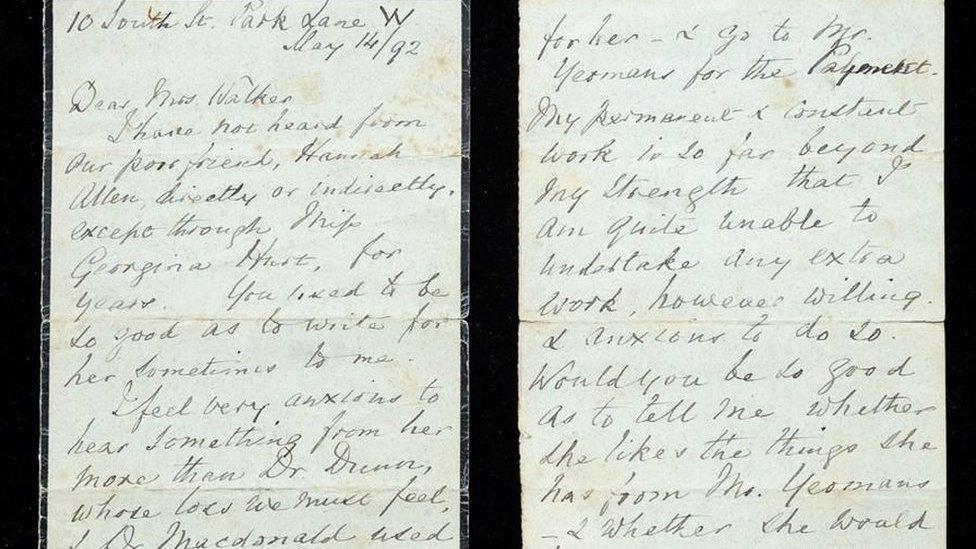 10 South St. Park Lane W
May 14/92
Dear Mrs. Walker
I have not heard from
our poor friend, Hannah
Allen, directly or indirectly,
except through Miss
Georgina Hurt, for
years. You used to be
so good as to write for
her sometimes to me.
I feel very anxious to
hear something from her
more than Dr. Dunn,
whose loss we must feel,
& Dr Macdonald used
for her - & go to Mr.
Yeomans for the Payment.
My permanent & constant
work is so far beyond
my strength that I
am quite unable to
undertake any extra
work, however willing
& anxious to do so.
Would you be so good
as to tell me whether
she likes the things she
has from Mr. Yeomans
- & whether she would